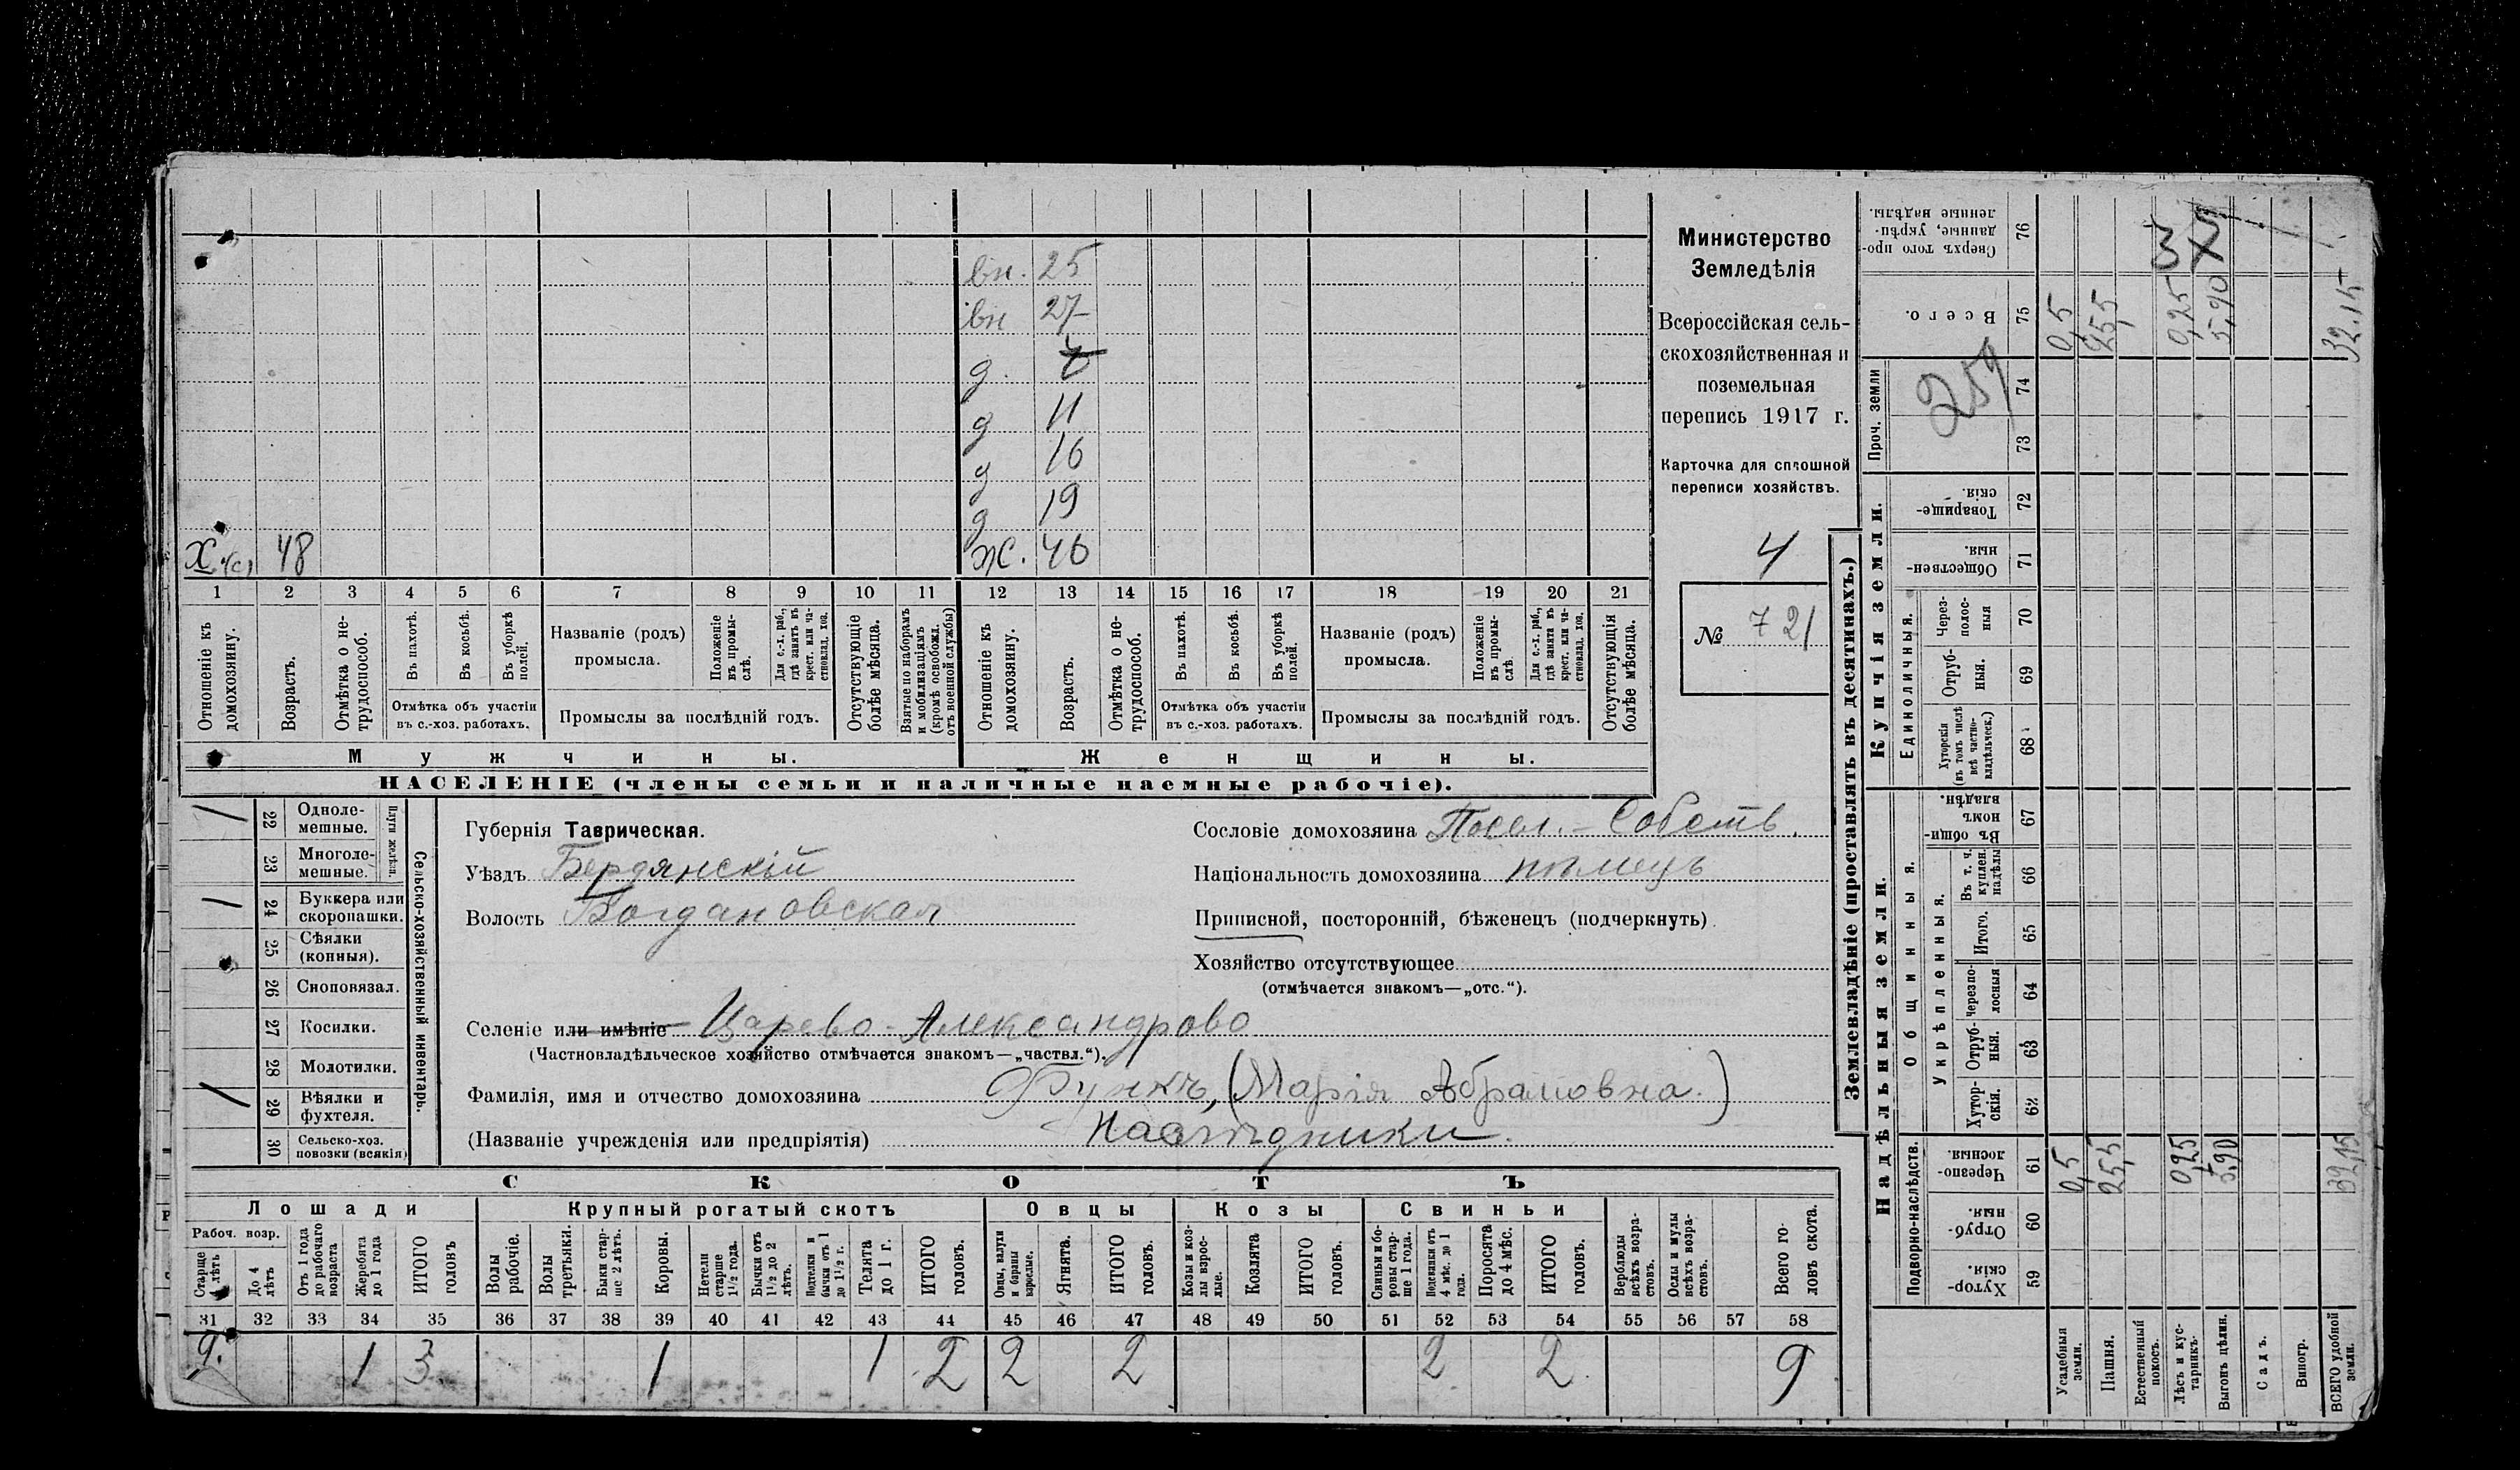 вн. 25
вн 27
д.
д 11
д 16
д 19
Х. (с) 48 ж. 46
1 2 3 4 5 6 7 8 9 10 11 12 13 14 15 16 17 18 19 20 21
Отношеніе къ домохозяину.
Возрастъ.
Отмѣтка о не-трудоспособ.
Въ пахотѣ.
Въ косьбѣ.
Въ уборкѣ полей.
Отмѣтка объ участіи въ с.-хоз. работахъ.
Названіе (родъ) промысла.
Положеніе въ промы-слѣ.
Для с.-х. раб., гдѣ занятъ въ крест. или ча-стновлад. хоз.
Промыслы за послѣдній годъ.
Отсутствующіе болѣе мѣсяца.
Взятые по наборамъ и мобилизаціямъ (кромѣ освобожд. отъ военной службы)
Отношеніе къ домохозяину.
Возрастъ.
Отмѣтка о не-трудоспособ.
Въ пахотѣ.
Въ косьбѣ.
Въ уборкѣ полей.
Отмѣтка объ участіи въ с.-хоз. работахъ.
Названіе (родъ) промысла.
Положеніе въ промы-слѣ.
Для с.-х. раб., гдѣ занята въ крест. или ча-стновлад. хоз.
Промыслы за послѣдній годъ.
Отсутствующія болѣе мѣсяца.
Мужчины. Женщины.
НАСЕЛЕНІЕ (члены семьи и наличные наемные рабочіе).
Министерство
Земледѣлія
Всероссійская сель-
скохозяйственная и
поземельная
перепись 1917 г.
Карточка для сплошной
переписи хозяйствъ.
4
№ 721
Сельско-хозяйственный инвентарь.
Плуги желѣз.
/ 22 Одноле-мешные.
23 Многоле-мешные.
/ 24 Буккера или скоропашки.
25 Сѣялки (конныя).
26 Сноповязал.
27 Косилки.
28 Молотилки.
/ 29 Вѣялки и фухтеля.
30 Сельско-хоз. повозки (всякія)
Губернія Таврическая.
Уѣздъ Бердянскій
Волость Богдановская
Сословіе домохозяина Посел. - Собств.
Національность домохозяина нѣмецъ
Приписной, посторонній, бѣженецъ (подчеркнуть)
Хозяйство отсутствующее
(отмѣчается знакомъ—„отс.“).
Селеніе или имѣніе Царево-Александрово
(Частновладѣльческое хозяйство отмѣчается знакомъ—„частвл.“).
Фамилія, имя и отчество домохозяина Функъ, (Марія Абрамовна.)
(Названіе учрежденія или предпріятія) Наслѣдники.
СКОТЪ
Лошади Крупный рогатый скотъ Овцы Козы Свиньи
Рабоч. возр.
Старше 4 лѣтъ
До 4 лѣтъ
Отъ 1 года до рабочаго возраста
Жеребята до 1 года
ИТОГО головъ
Волы рабочіе.
Волы третьяки.
Быки стар-ше 2 лѣтъ.
Коровы.
Нетели старше 1 1/2 года.
Бычки отъ 1 1/2 до 2 лѣтъ.
бычки отъ 1 до 1 1/2 г.
Телята до 1 г.
ИТОГО головъ.
Овцы, валухи и бараны взрослые.
Ягнята.
ИТОГО головъ.
Козы и коз-лы взрос-лые.
Козлята
ИТОГО головъ.
Свиньи и бо-ровы стар-ше 1 года.
Подсвинки отъ 4 мѣс. до 1 года.
Поросята до 4 мѣс.
ИТОГО головъ.
Верблюды всѣхъ возра-стовъ.
Ослы и мулы всѣхъ возра-стовъ.
Всего го-ловъ скота.
31 32 33 34 35 36 37 38 39 40 41 42 43 44 45 46 47 48 49 50 51 52 53 54 55 56 57 58
1 3 1 1 2 2 2 2 2 9
Землевладѣніе (проставлять въ десятинахъ.)
Надѣльныя земли. Купчія земли.
Подворно-наслѣдств.
Общинныя.
Укрѣпленныя.
Единоличныя.
Проч. земли
59 Хутор-скія.
60 Отруб-ныя.
61 Черезпо-лосныя.
62 Хутор-скія.
63 Отруб-ныя.
64 Черезпо-лосныя
65 Итого.
66 Въ т. ч. куплен. надѣлы
67 Въ общин-номъ владѣн.
68 Хуторскія (въ томъ числѣ всѣ частно-владѣльческ.)
69 Отруб-ныя.
70 Через-полос-ныя
71 Обществен-ныя.
72 Товарище-скія.
73
74
75 Всего.
76 Сверхъ того про-данные, укрѣп-ленные надѣлы.
Усадебныя земли. 0,5 0,5
Пашня. 25,5 25,5
Естественный покосъ.
Лѣсъ и кус-тарникъ. 0,25 0,25
Выгонъ цѣлин. 5,90 5,90
Садъ.
Виногр.
ВСЕГО удобной земли. 32,15 32.15
259
37